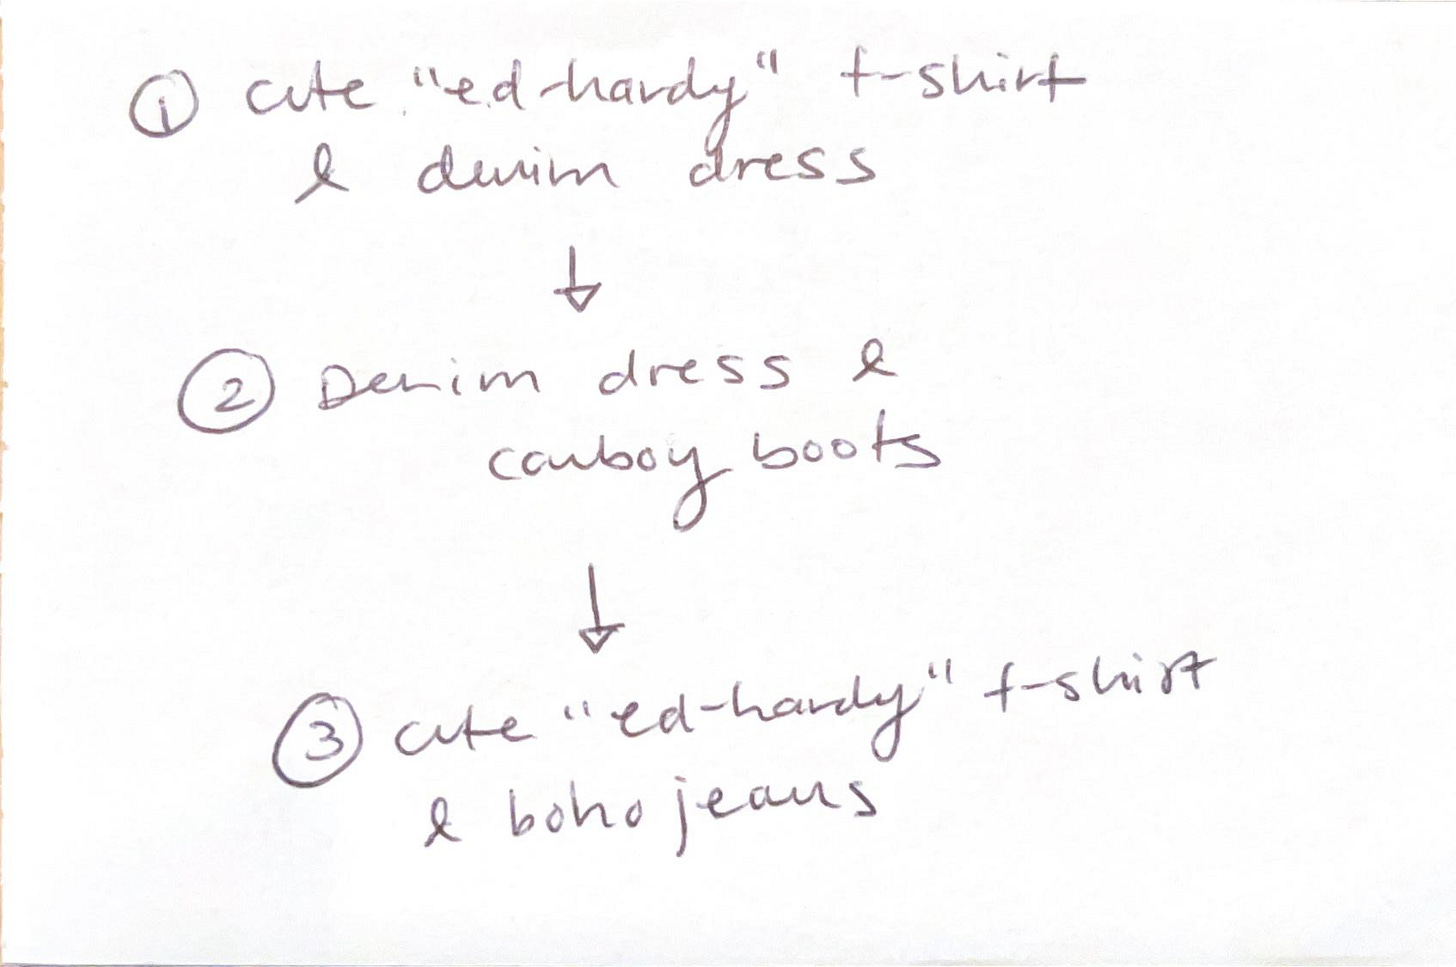 ① cute "ed-hardy" t-shirt
& denim dress
↓
② Denim dress &
cowboy boots
↓
③ cute "ed-hardy" t-shirt
& boho jeans